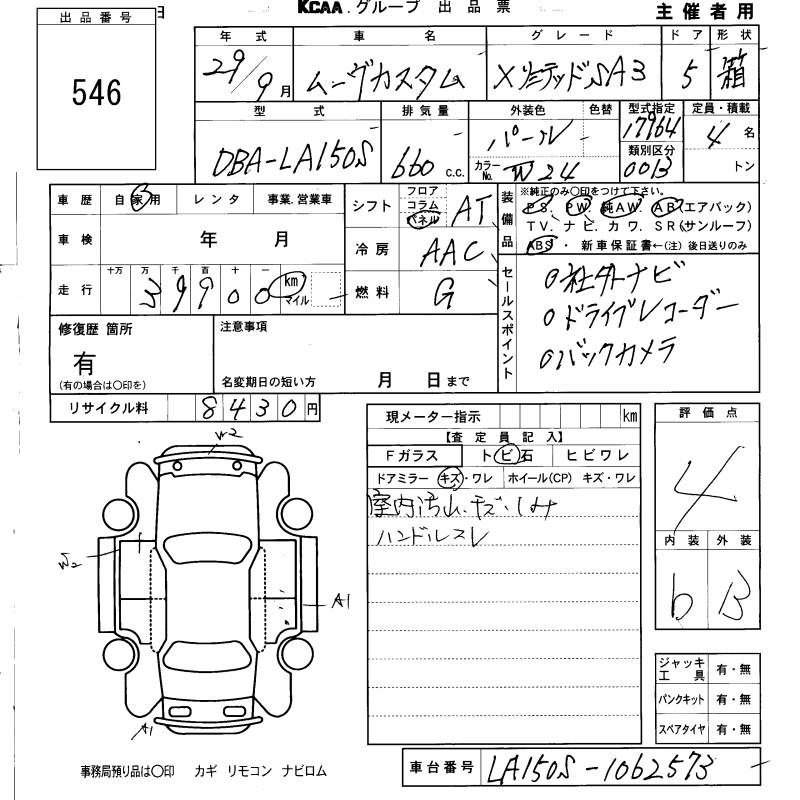 KCAA.グループ 出品票
日
主催者用
出品番号
546
年式 車名 グレード ドア 形状
29/9月 ムーヴカスタム Xリミテッド SA3 5 箱
型式 排気量 外装色 色替 型式指定 定員・積載
DBA-LA150S 660 c.c. パール 17964 4名
カラーNo. W24 類別区分 0013 トン
車歴 自家用 レンタ 事業.営業車
シフト フロア コラム パネル AT
装備品 ※純正のみ〇印をつけて下さい。
PS、PW、純AW、AB(エアバック)
TV、ナビ、カワ、SR(サンルーフ)
ABS・新車保証書←(注)後日送りのみ
車検 年 月
冷房 AAC
走行 十万 万 千 百 十 一 km マイル
39900
燃料 G
セールスポイント
○社外ナビ
○ドライブレコーダー
○バックカメラ
修復歴 箇所
有
(有の場合は〇印を)
注意事項
名変期日の短い方 月 日まで
リサイクル料 8430円
現メーター指示 km
【査定員記入】
Fガラス トビ石 ヒビワレ
ドアミラー キズ・ワレ ホイール(CP) キズ・ワレ
室内汚れ.キズ.しみ
ハンドルスレ
評価点
4
内装 外装
b B
W2
W2
A1
A1
ジャッキ工具 有・無
パンクキット 有・無
スペアタイヤ 有・無
事務局預り品は〇印 カギ リモコン ナビロム
車台番号 LA150S-1062573